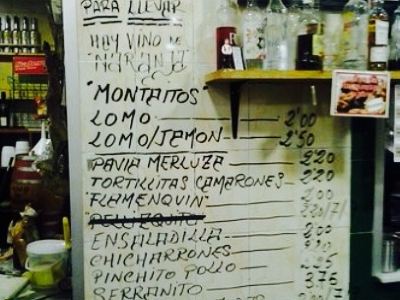 PARA LLEVAR
HAY VINO DE
NARANJA
"MONTAITOS"
LOMO 2'00
LOMO/JAMON 2'50
PAVIA MERLUZA 2'20
TORTILLITAS CAMARONES 2'20
"FLAMENQUIN" 2'00
ENSALADILLA 2'00
CHICHARRONES
PINCHITO POLLO 3'75
SERRANITO